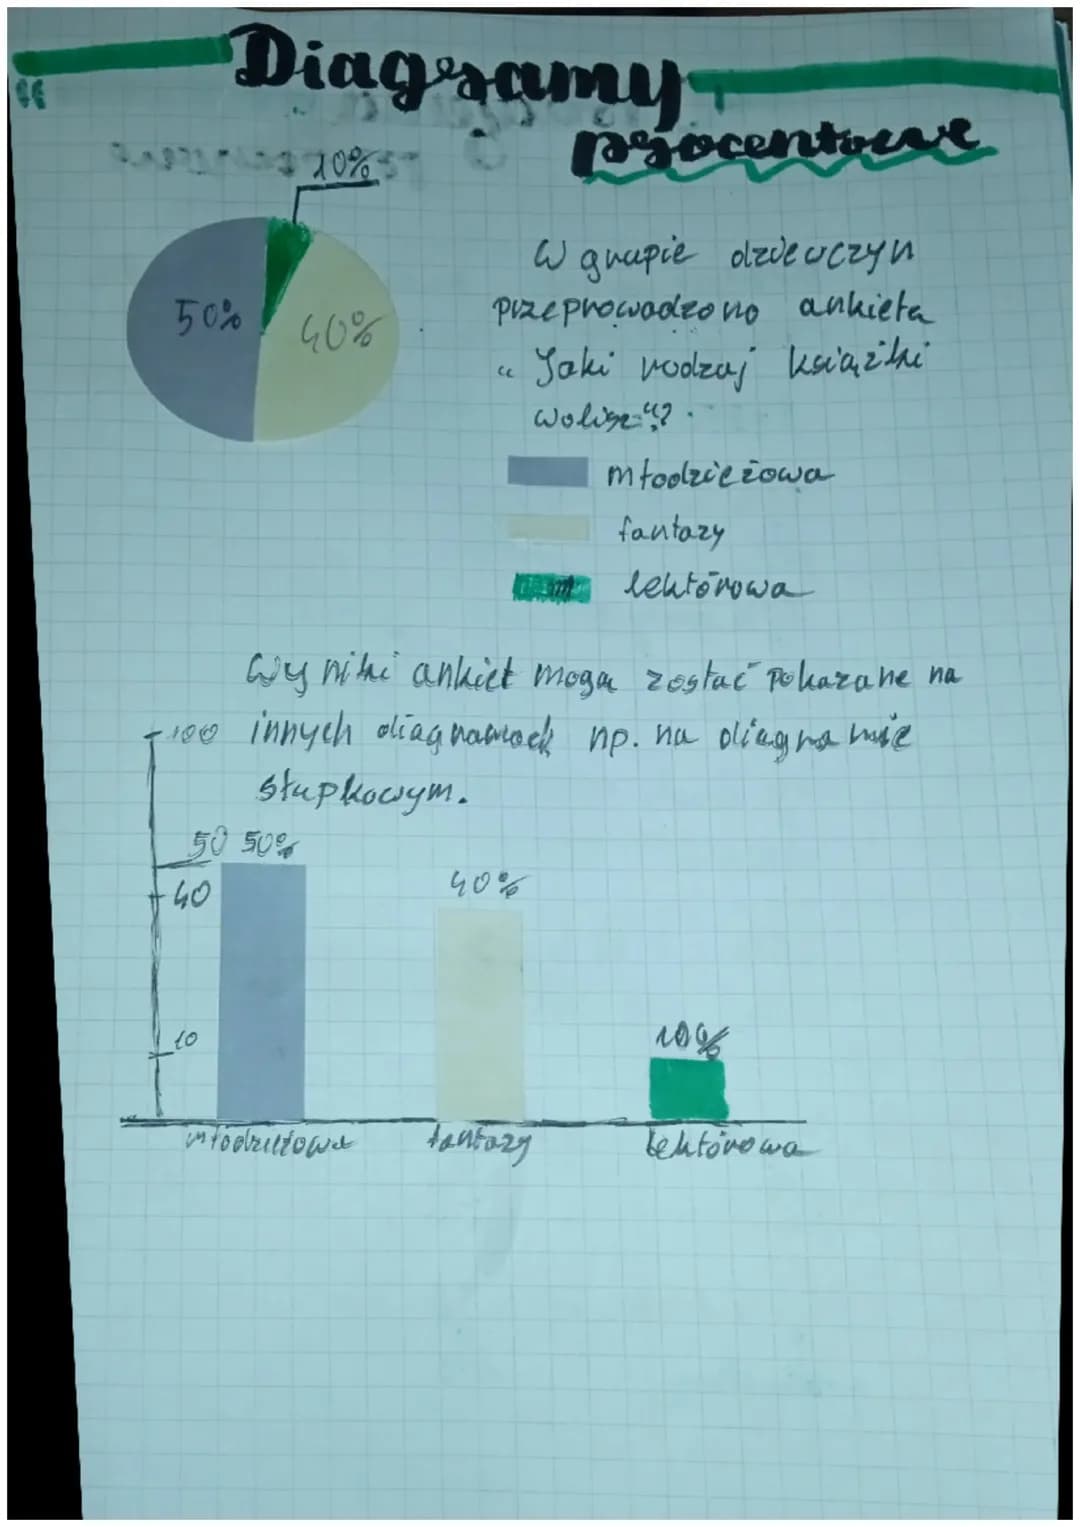 Diagramy
procentowe
10%
50%
40%
W grupie dziewczyn
przeprowadzono ankieta
" Jaki rodzaj książki
wolisz"?
młodzieżowa
fantazy
lektórowa
Wyniki ankiet moga zostać pokazane na
100 innych diagramach np. na diagramie
słupkowym.
50 50%
40
40%
10
10%
młodzieżowa fantazy lektórowa